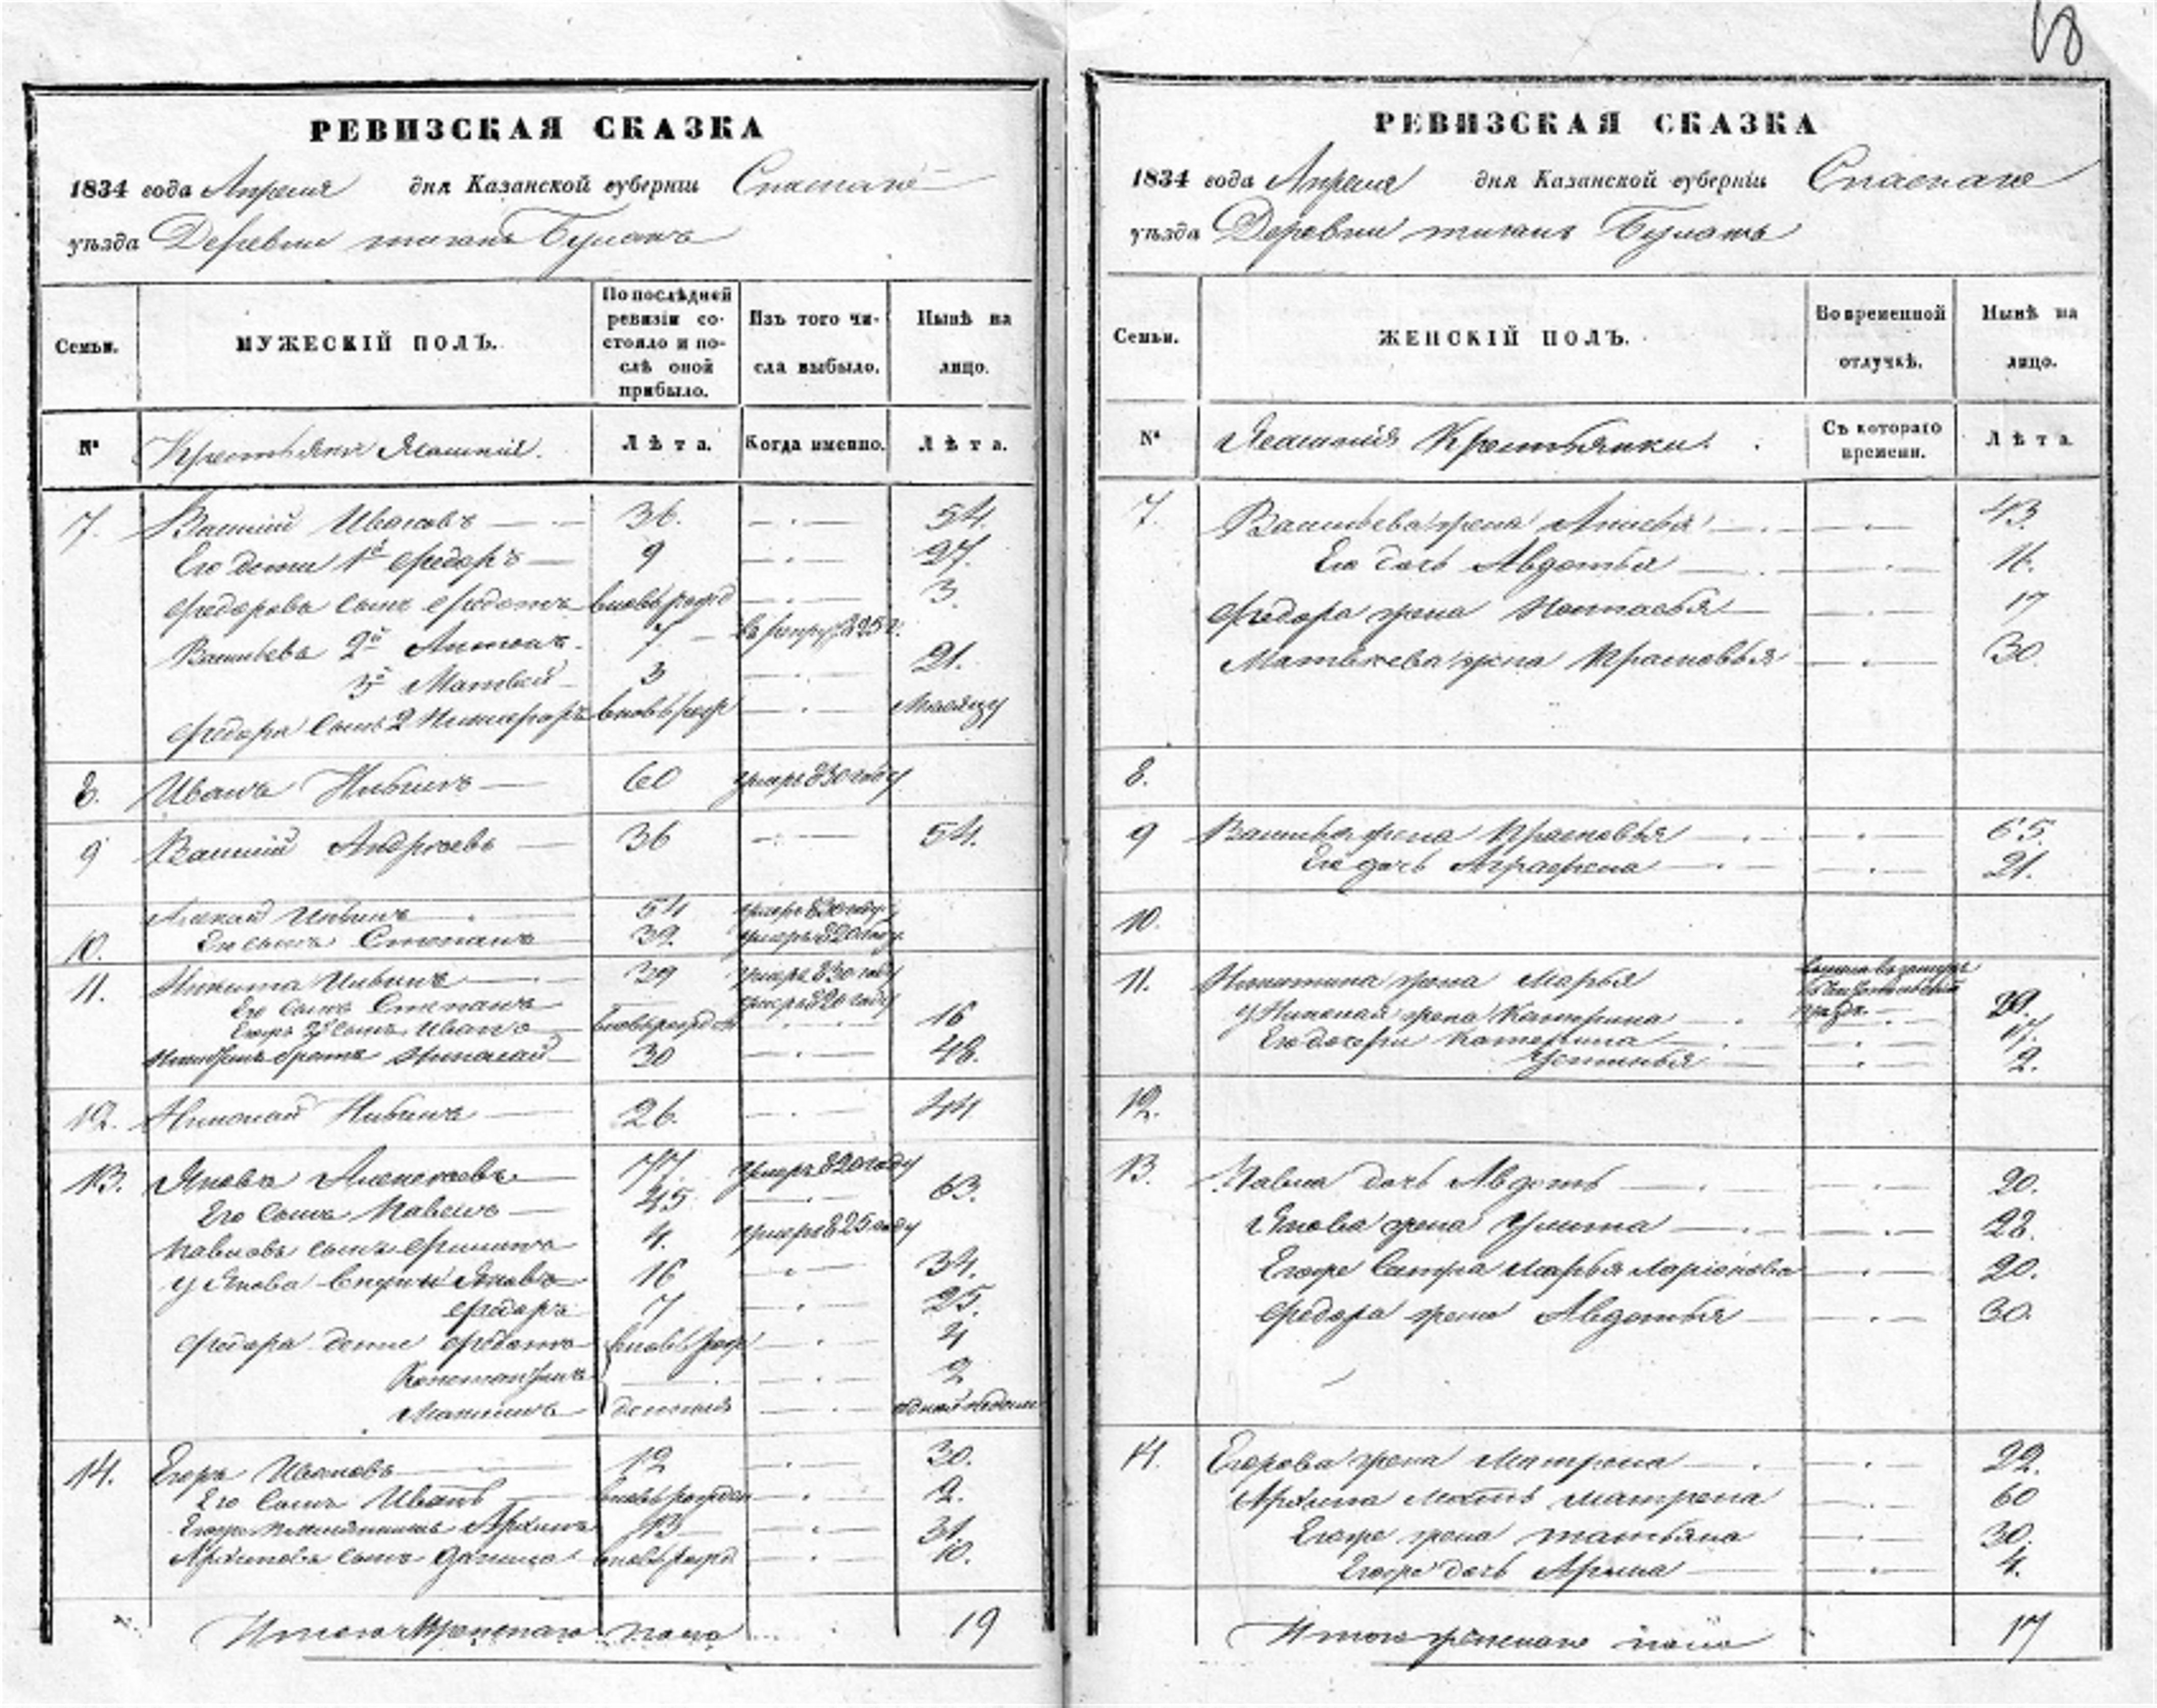 68
РЕВИЗСКАЯ СКАЗКА
1834 года Апреля дня Казанской губерніи Спаскаго
уѣзда Деревни Булакъ
Семьи.
МУЖЕСКІЙ ПОЛЪ.
По послѣдней ревизіи состояло и послѣ оной прибыло.
Изъ того числа выбыло.
Нынѣ на лицо.
№
Крестьяне
Лѣта.
Когда именно.
Лѣта.
7. Василій Ивановъ 36. 54.
Его дети 1й Федоръ 9 27.
Федорова сынъ Федотъ вновь рожд 3.
Васильева 2й Антонъ 7
3й Матвей 3 21.
Федора сынъ 2 вновь рож месяцу
8. Ивана 60 умеръ 830 году
9 Василий Андреевъ 36 54.
10. 54 умеръ 830 году
Его сынъ Степанъ 32 умеръ 820 году
11. Никита 39 умеръ 830 году
Его сынъ Степанъ умеръ 820 году
Егоръ 2й сынъ Иванъ вновь рожден 16
братъ Николай 30 48.
12. Николай 26. 44.
13. Якова Алексеевъ 77. умеръ 820 году
Его сынъ Павелъ 45 63.
Павловъ сынъ 4. умеръ 825 году
у Якова внуки Яковъ 16 34.
Федоръ 7 25.
Федора дети Федотъ вновь рож 4
Константинъ 2
одной недели
14. Егоръ Ивановъ 12 30.
Его сынъ Иванъ вновь рожден 2.
Егоже племянникъ Архипъ 13 31.
Архипова сынъ Данила вновь рожд 10.
Итого мужескаго пола 19
РЕВИЗСКАЯ СКАЗКА
1834 года Апреля дня Казанской губерніи Спаскаго
уѣзда Деревни Булакъ
Семьи.
ЖЕНСКІЙ ПОЛЪ.
Во временной отлучкѣ.
Нынѣ на лицо.
№
Крестьянки.
Съ котораго времени.
Лѣта
7. Васильева жена Анисья 43.
Его дочь Авдотья 16.
Федора жена Настасья 17
Матвеева жена Прасковья 30.
8.
9 Василья жена Прасковья 65.
Его дочь Аграфена 21.
10.
11. Никитина жена Марья
у Николая жена Катерина 29.
Его дочери Катерина 17.
Устинья 2.
12.
13. Павла дочь Авдоть 20.
Якова жена Улита 28.
Егоже сестра Марья Ларіонова 20.
Федора жена Авдотья 30.
14. Егорова жена Матрена 22.
Архипа мать Матрена 60
Егоже жена Татьяна 30.
Егоже дочь Арина 4.
Итого женскаго пола 17